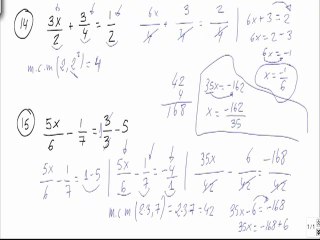 14) 3x/2 + 3/4 = 1/2   6x/4 + 3/4 = 2/4 | 6x+3=2
6x=2-3
6x=-1
x=-1/6
m.c.m(2,2²)=4
42
4
168
35x=-162
x=-162/35
15) 5x/6 - 1/7 = 1 3/3 - 5
5x/6 - 1/7 = 1-5 | 5x/6 - 1/7 = -4/1 | 35x/42 - 6/42 = -168/42
m.c.m(2·3,7)=2·3·7=42   35x-6=-168
35x=-168+6
1/1